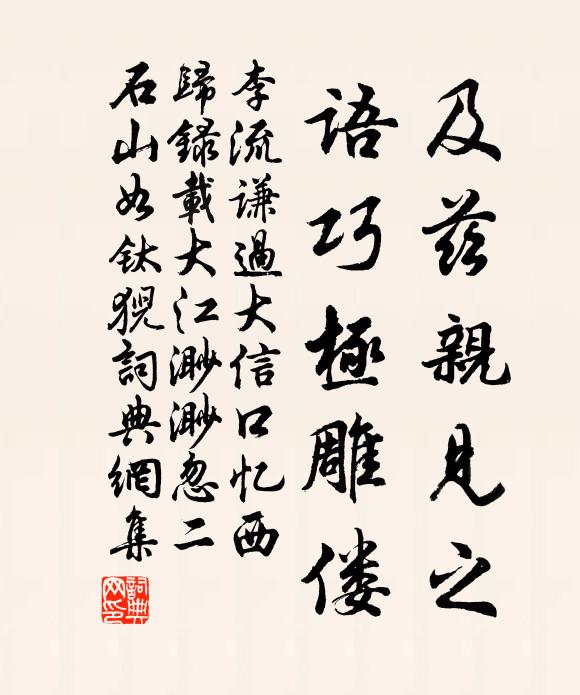 及茲親見之
語巧極雕偻
李流谦過大信口忆西
歸録載大江渺渺忽二
石山如钛猊詞典網集
詞典网印